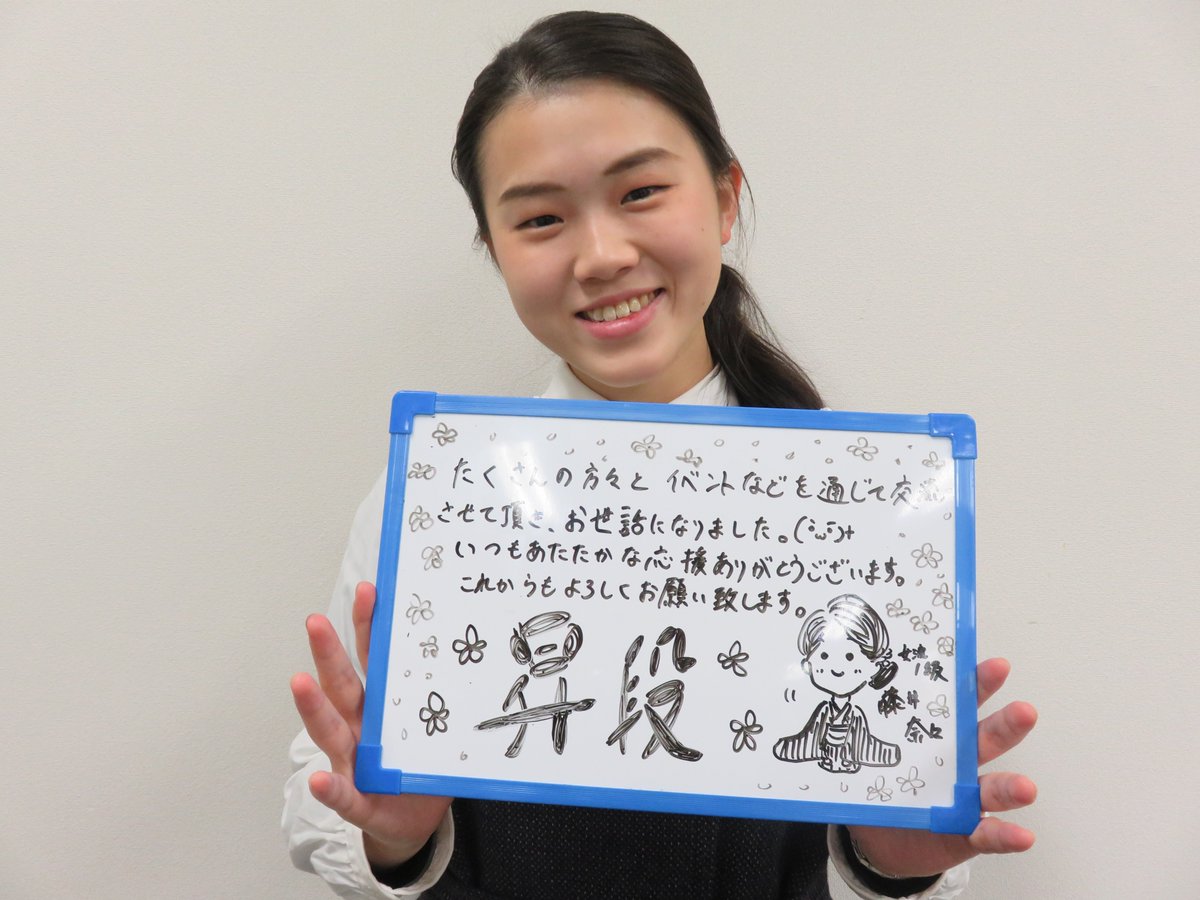 たくさんの方々と イベントなどを通じて交流
させて頂き、お世話になりました。(･ω･)+
いつもあたたかな応援ありがとうございます。
これからもよろしくお願い致します。
昇段
女流
1級
藤井
奈々